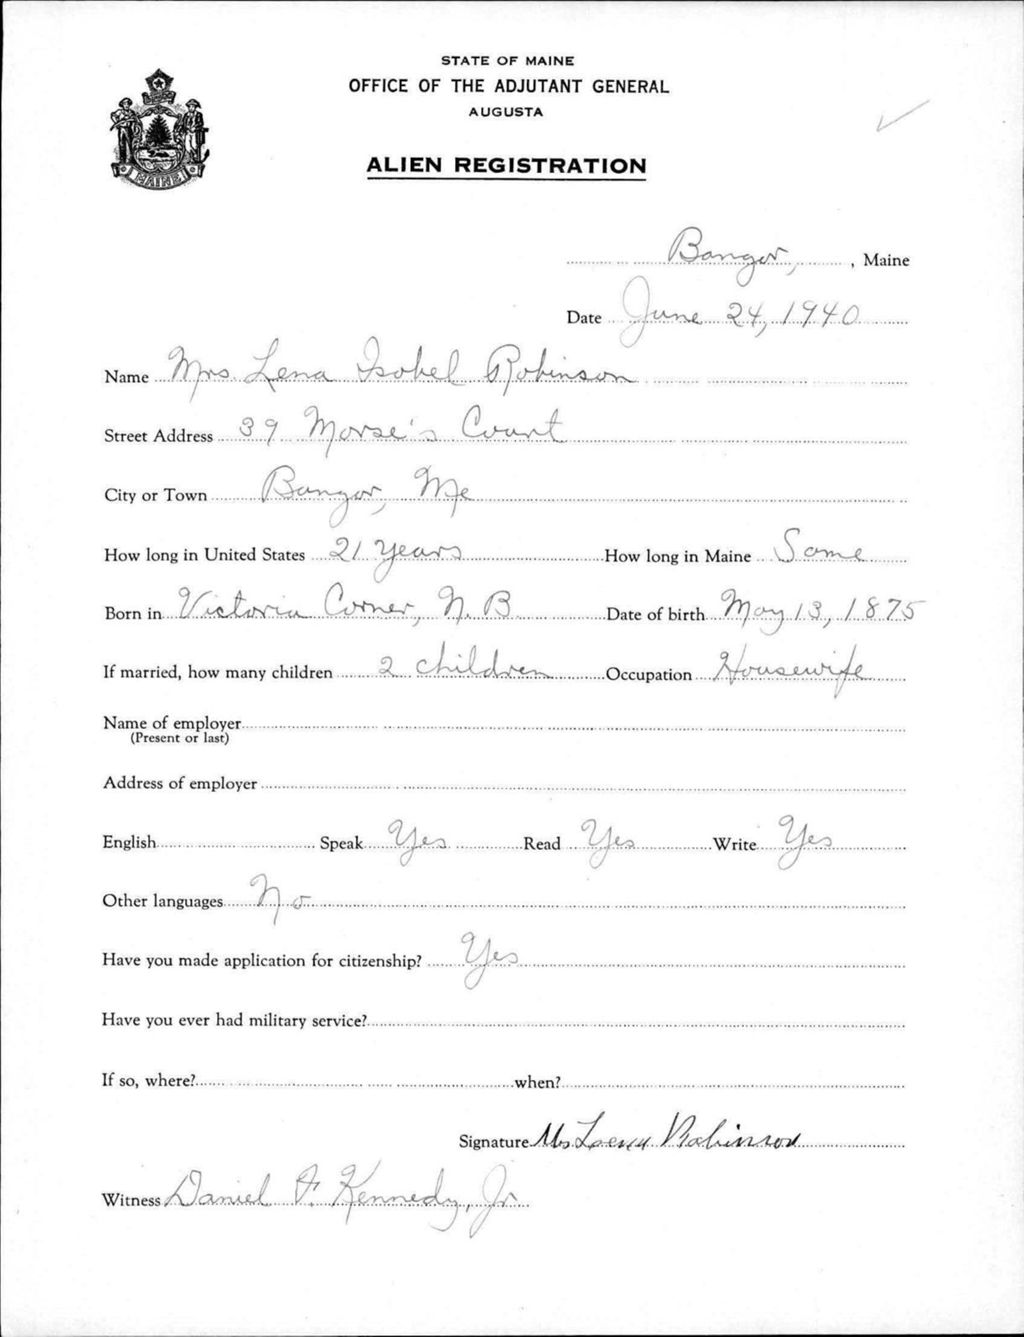 STATE OF MAINE
OFFICE OF THE ADJUTANT GENERAL
AUGUSTA
ALIEN REGISTRATION
MAINE
Bangor, , Maine
Date June 24, 1940
Name Mrs. Lena Isobel Robinson
Street Address 39 Morse's Court
City or Town Bangor, Me
How long in United States 21 years How long in Maine Same
Born in Victoria Corner, N. B Date of birth May 13, 1875
If married, how many children 2 children Occupation Housewife
Name of employer
(Present or last)
Address of employer
English Speak Yes Read Yes Write Yes
Other languages No
Have you made application for citizenship? Yes
Have you ever had military service?
If so, where? when?
Signature Mrs Lena Robinson
Witness Daniel F. Kennedy, Jr.